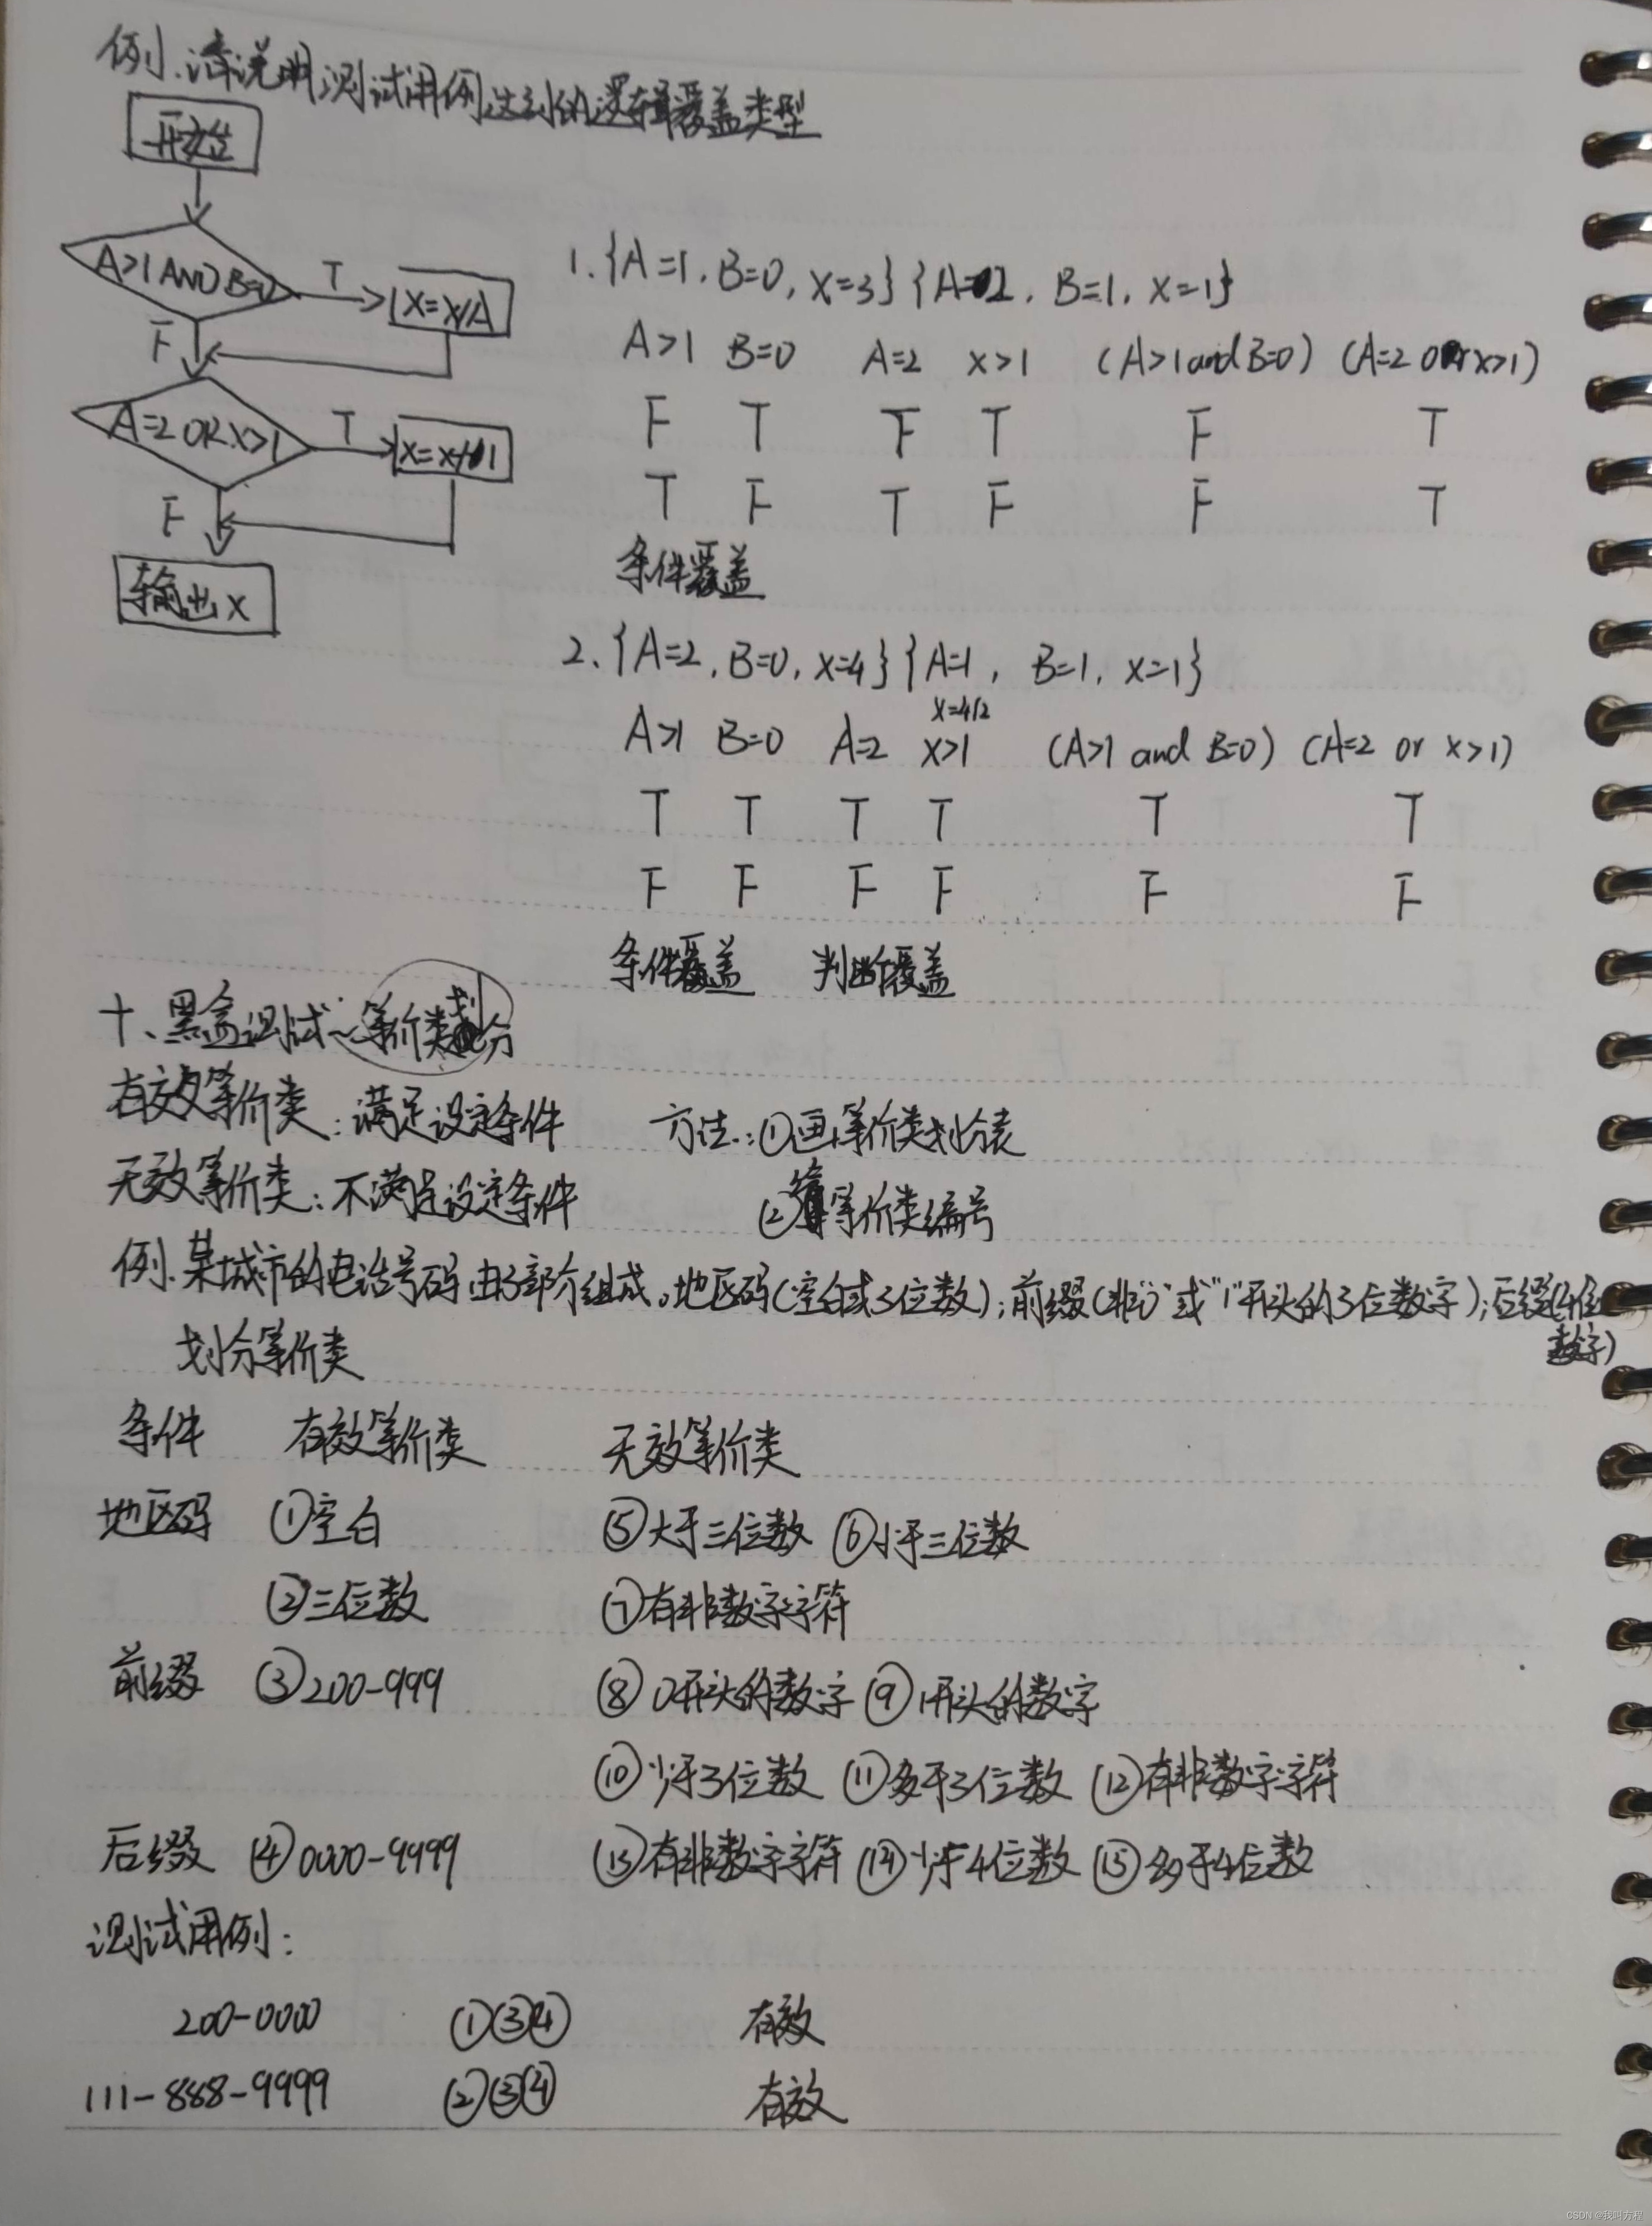 例.请说明测试用例达到的逻辑覆盖类型
开始
A>1 AND B=0
T
X=X/A
F
A=2 OR X>1
T
X=X+1
F
输出X
1.{A=1,B=0,X=3}{A=2,B=1,X=1}
A>1 B=0 A=2 X>1 (A>1 and B=0) (A=2 or X>1)
F T F T F T
T F T F F T
条件覆盖
2、{A=2,B=0,X=4}{A=1,B=1,X=1}
X=4/2
A>1 B=0 A=2 X>1 (A>1 and B=0) (A=2 or X>1)
T T T T T T
F F F F F F
条件覆盖 判断覆盖
十、黑盒测试~等价类划分
有效等价类:满足设定条件 方法:①画等价类划分表
无效等价类:不满足设定条件 ②等价类编号
例.某城市的电话号码由3部分组成。地区码(空白或3位数);前缀(非"0"或"1"开头的3位数字);后缀(4位
数字)
划分等价类
条件 有效等价类 无效等价类
地区码 ①空白 ⑤大于三位数 ⑥小于三位数
②三位数 ⑦有非数字字符
前缀 ③200-999 ⑧0开头的数字 ⑨1开头的数字
⑩少于3位数 ⑪多于3位数 ⑫有非数字字符
后缀 ④0000-9999 ⑬有非数字字符 ⑭少于4位数 ⑮多于4位数
测试用例:
200-0000 ①③④ 有效
111-888-9999 ②③④ 有效
CSDN @我叫方程